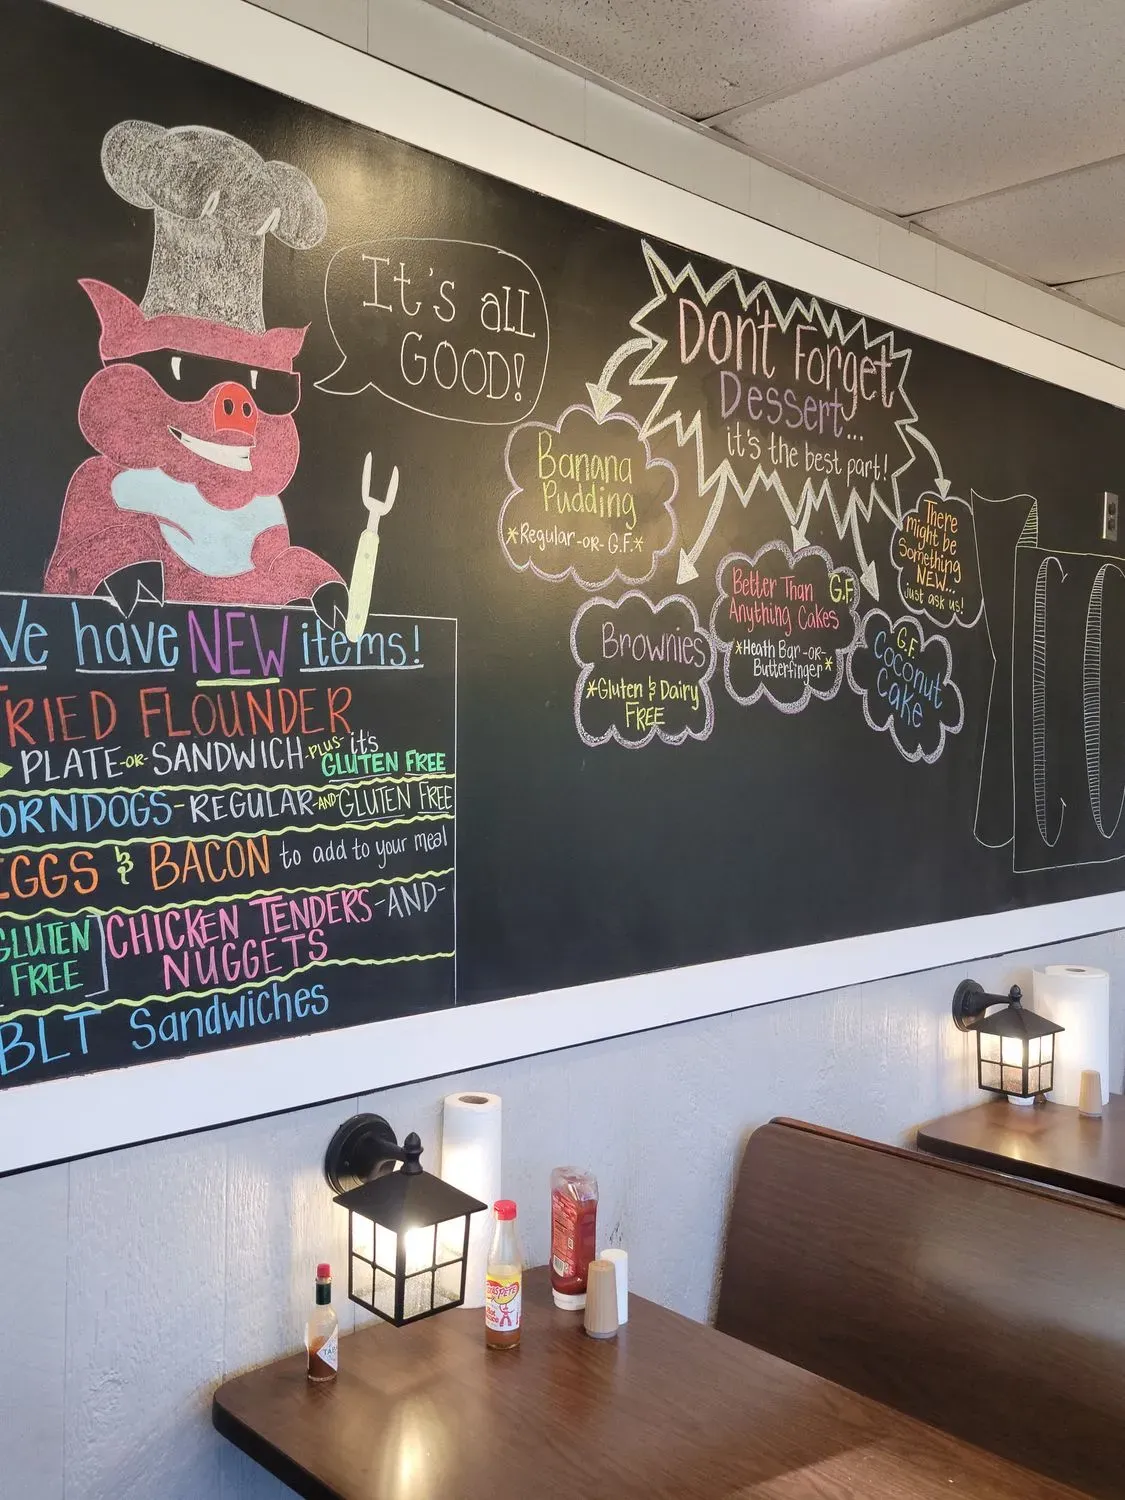 It's all
GOOD!
Don't Forget
Dessert...
it's the best part!
Banana
Pudding
*Regular-or-G.F.*
Brownies
*Gluten & Dairy
FREE
Better Than G.F.
Anything Cakes
*Heath Bar-OR-
Butterfinger*
G.F.
Coconut
Cake
There
might be
Something
NEW...
just ask us!
have NEW items!
FLOUNDER
PLATE-OR-SANDWICH-PLUS-it's
GLUTEN FREE
-REGULAR-AND-GLUTEN FREE
& BACON to add to your meal
GLUTEN
FREE
CHICKEN TENDERS-AND-
NUGGETS
BLT Sandwiches